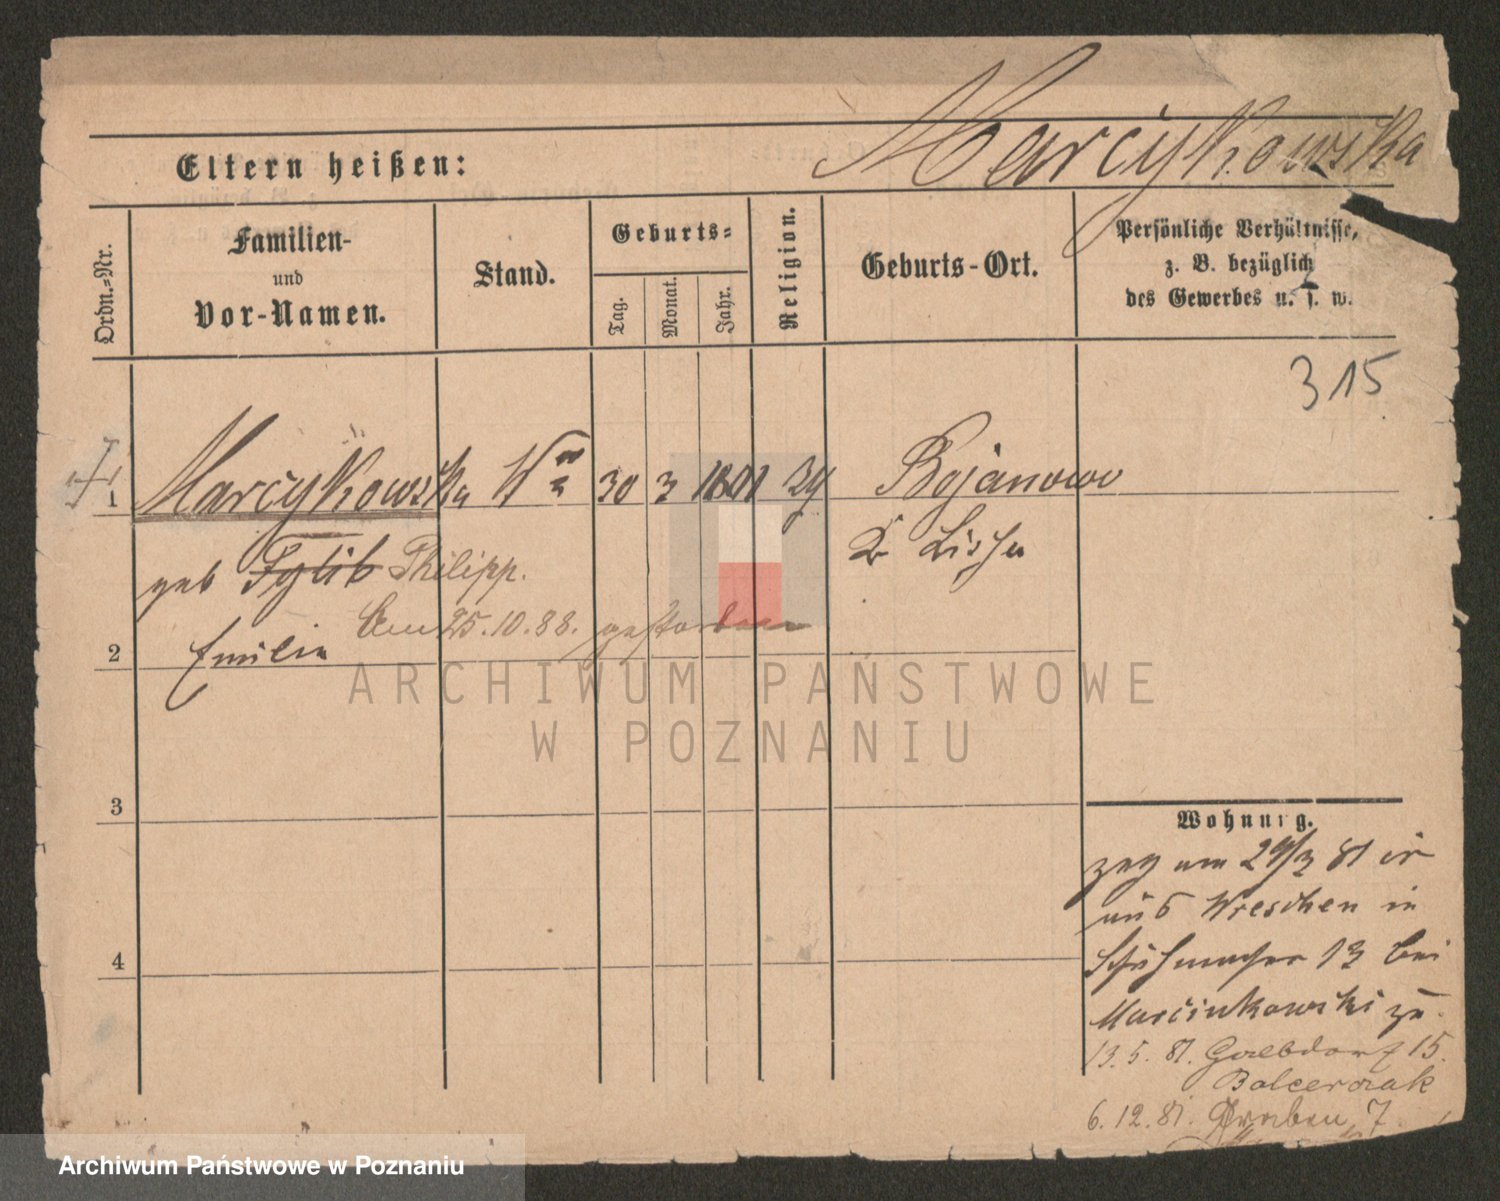 Marcykowska
Eltern heißen:
Ordn.-Nr.
Familien-
und
Vor-Namen.
Stand.
Geburts-
Tag.
Monat.
Jahr.
Religion.
Geburts-Ort.
Persönliche Verhältnisse,
z. B. bezüglich
des Gewerbes u. s. w.
315
1 Marcykowska Wwe 30 3 Bojanowo
geb Philipp.
Kr Lissa
Am 25.10.88. gestorben
2 Emilie
3
4
Wohnung.
zog am 29/3 81 ir
aus Wreschen in
Schuhmacher 13 bei
Marcinkowski zu.
13.5.81. Grabdorf 15.
Balcerczak
6.12.81. Graben 7
ARCHIWUM PAŃSTWOWE
W POZNANIU
Archiwum Państwowe w Poznaniu